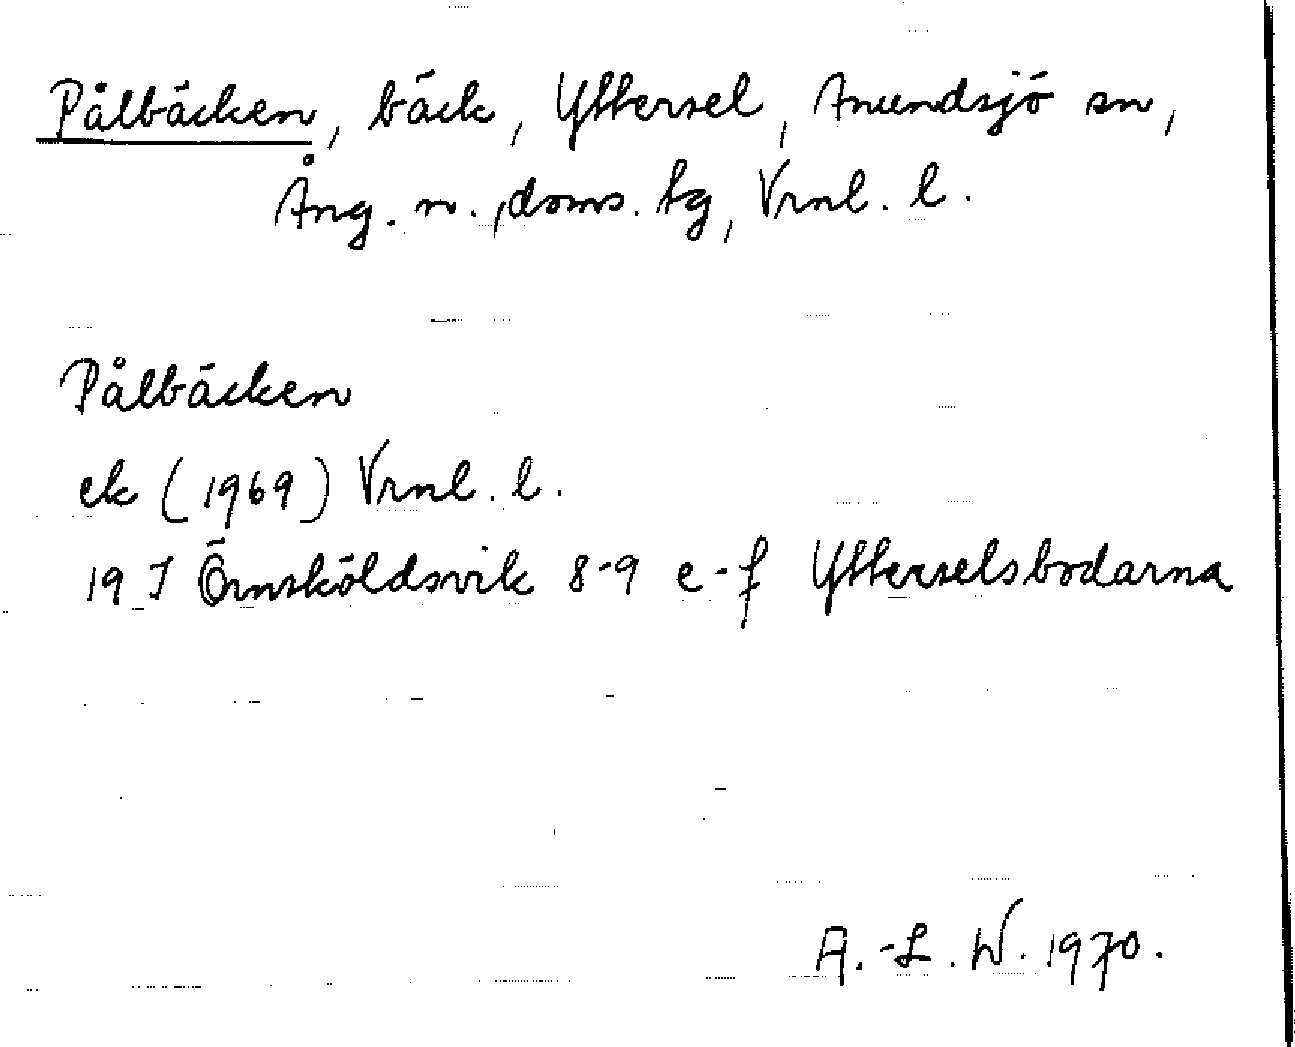 Pålbäcken, bäck, Yttersel, Anundsjö sn,
Ång. n., doms. tg, Vrnl. l.
Pålbäcken
ek (1969) Vrnl. l.
19 I Örnsköldsvik 8-9 e-f Ytterselsbodarna
A.-L. W. 1970.